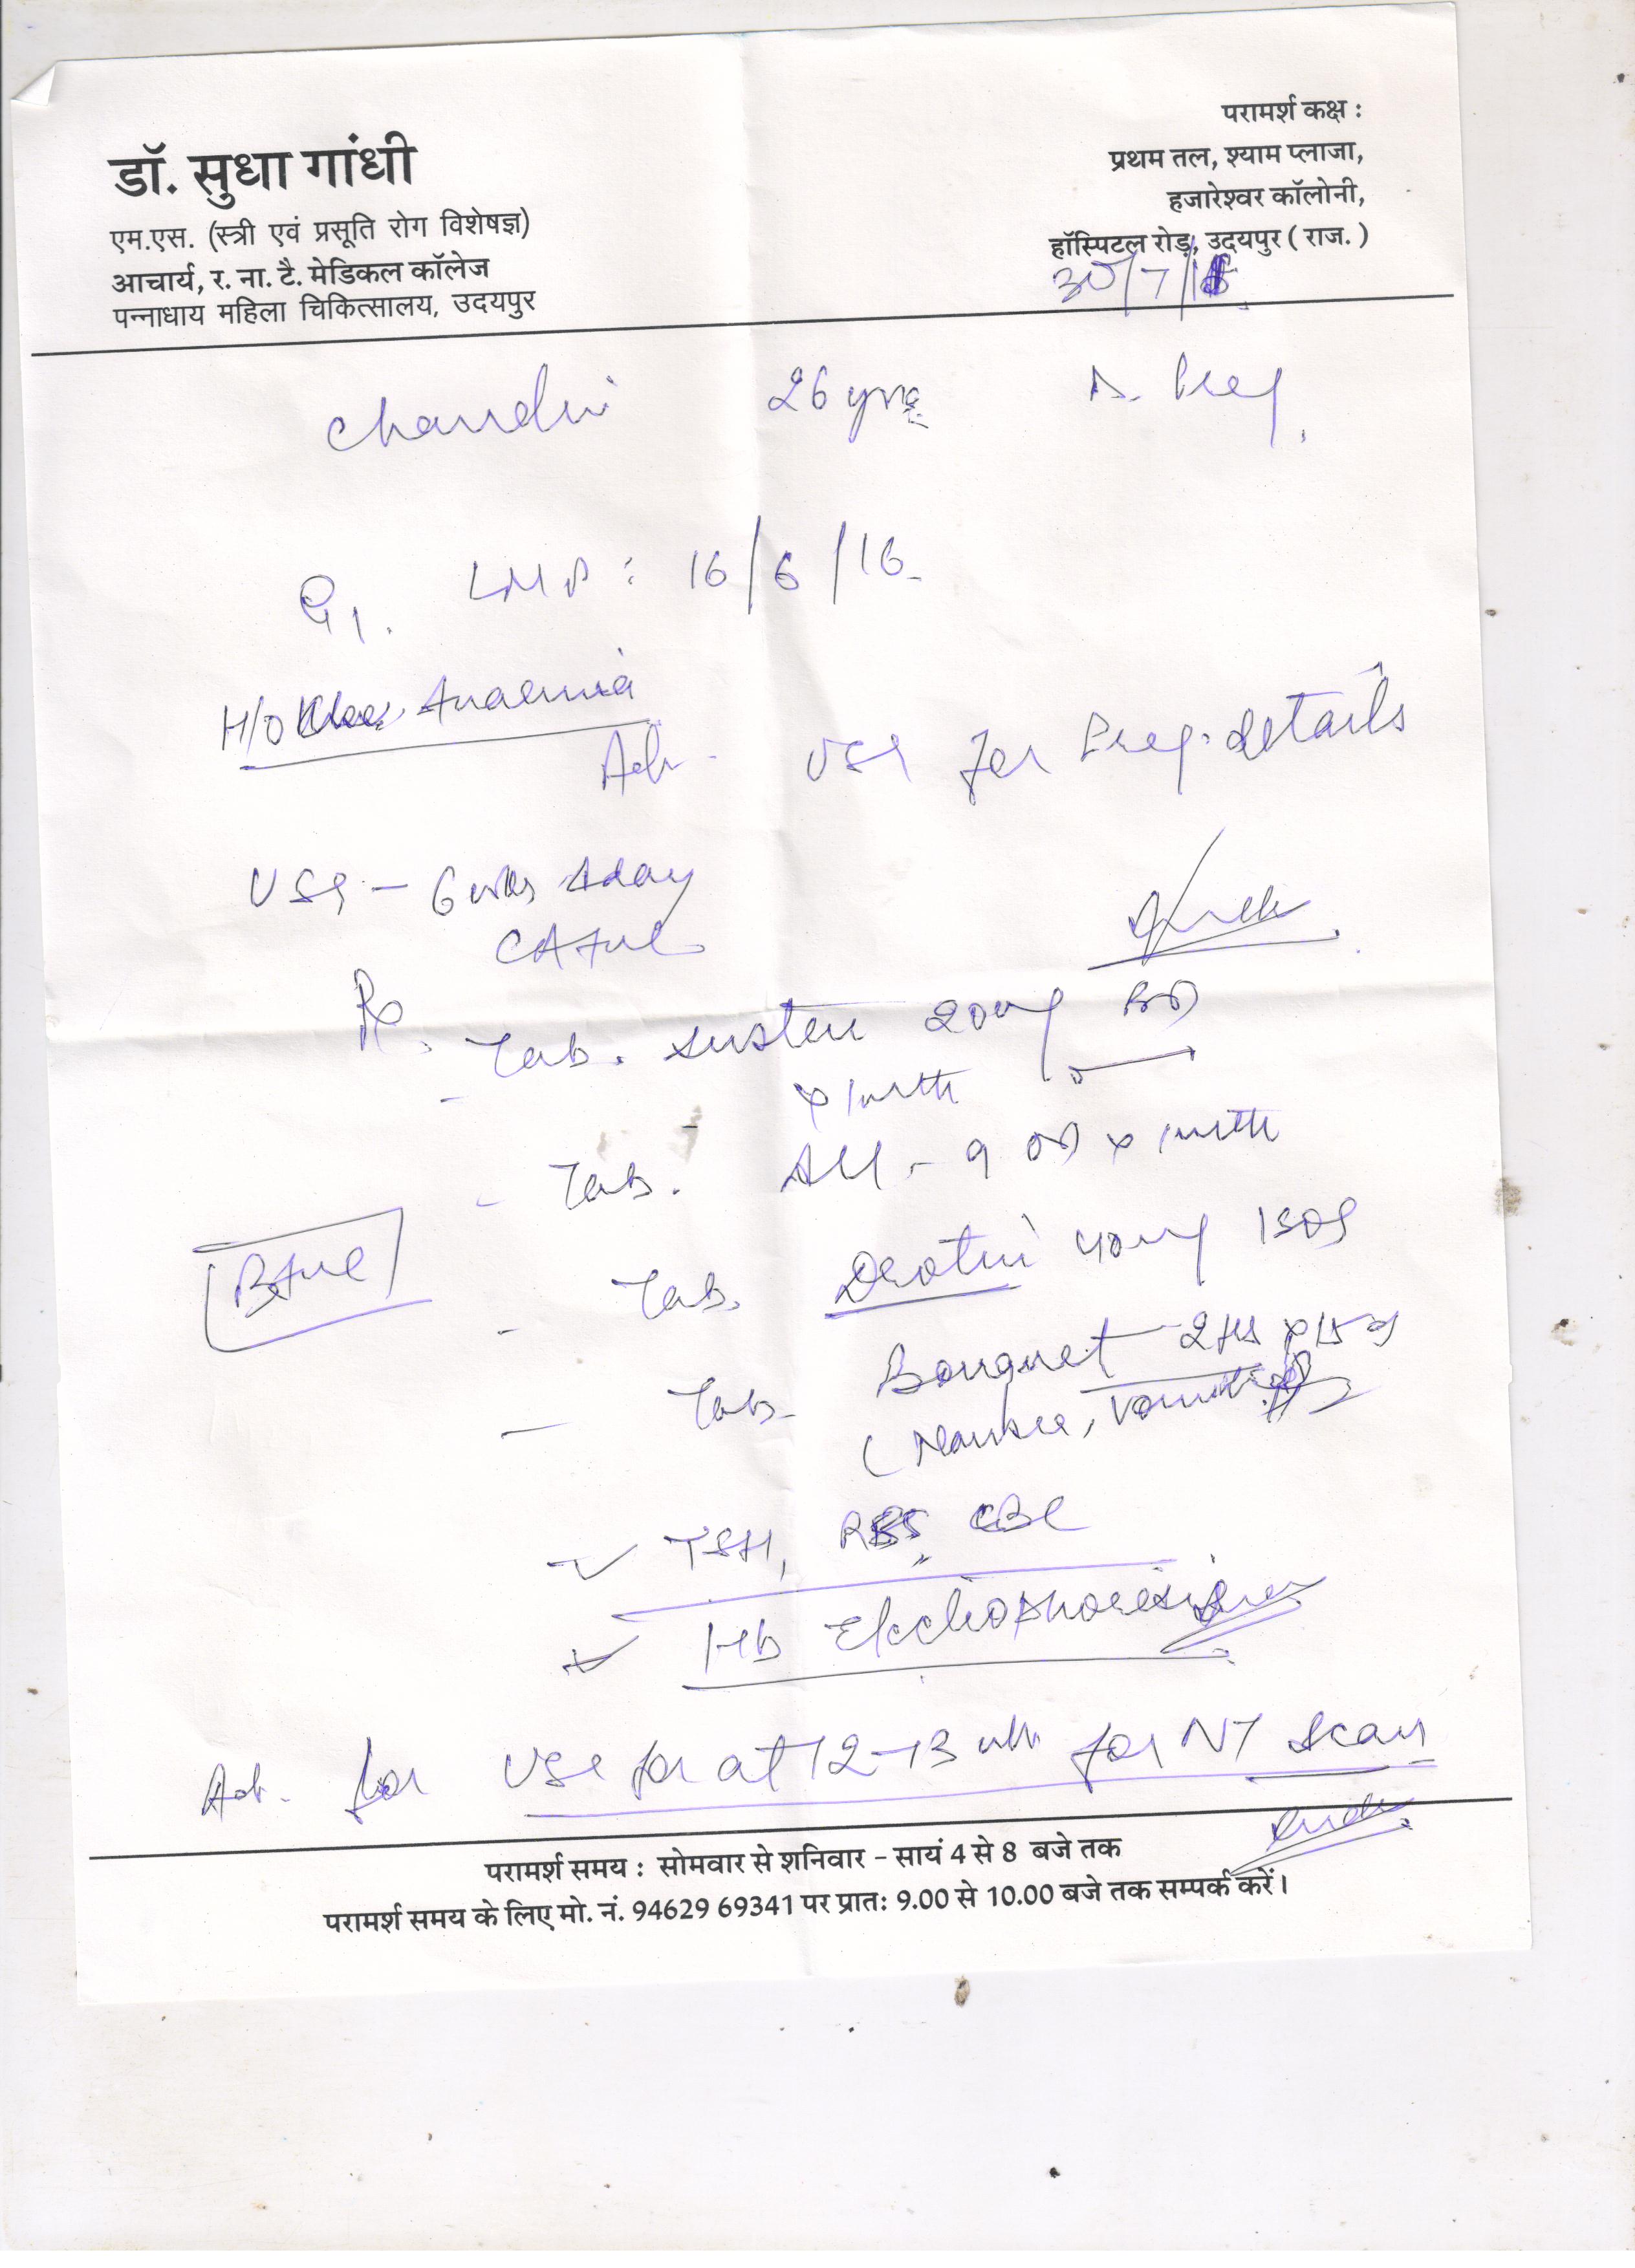 डॉ. सुधा गांधी
एम.एस. (स्त्री एवं प्रसूति रोग विशेषज्ञ)
आचार्य, र. ना. टै. मेडिकल कॉलेज
पन्नाधाय महिला चिकित्सालय, उदयपुर
परामर्श कक्ष :
प्रथम तल, श्याम प्लाजा,
हजारेश्वर कॉलोनी,
हॉस्पिटल रोड़, उदयपुर ( राज. )
30/7/16
26 yrs
G1. LMP : 16/6/16
H/O Anaemia
Adv. USG for Preg. details
USG - 6 wks 4day
CA +ve
Rx
- Tab. Susten 200mg BD
x 1mth
- Tab. - 9 OD x 1mth
B+ve
- Tab. Drotin 40mg 1 SOS
- Tab. Bouquet 2HS x 15 d
(Nausea, Vomiting)
TSH, RBS CBC
Hb Electrophoresis
Adv. for USG for at 12-13 wk for NT Scan
परामर्श समय : सोमवार से शनिवार - सायं 4 से 8 बजे तक
परामर्श समय के लिए मो. नं. 94629 69341 पर प्रातः 9.00 से 10.00 बजे तक सम्पर्क करें।